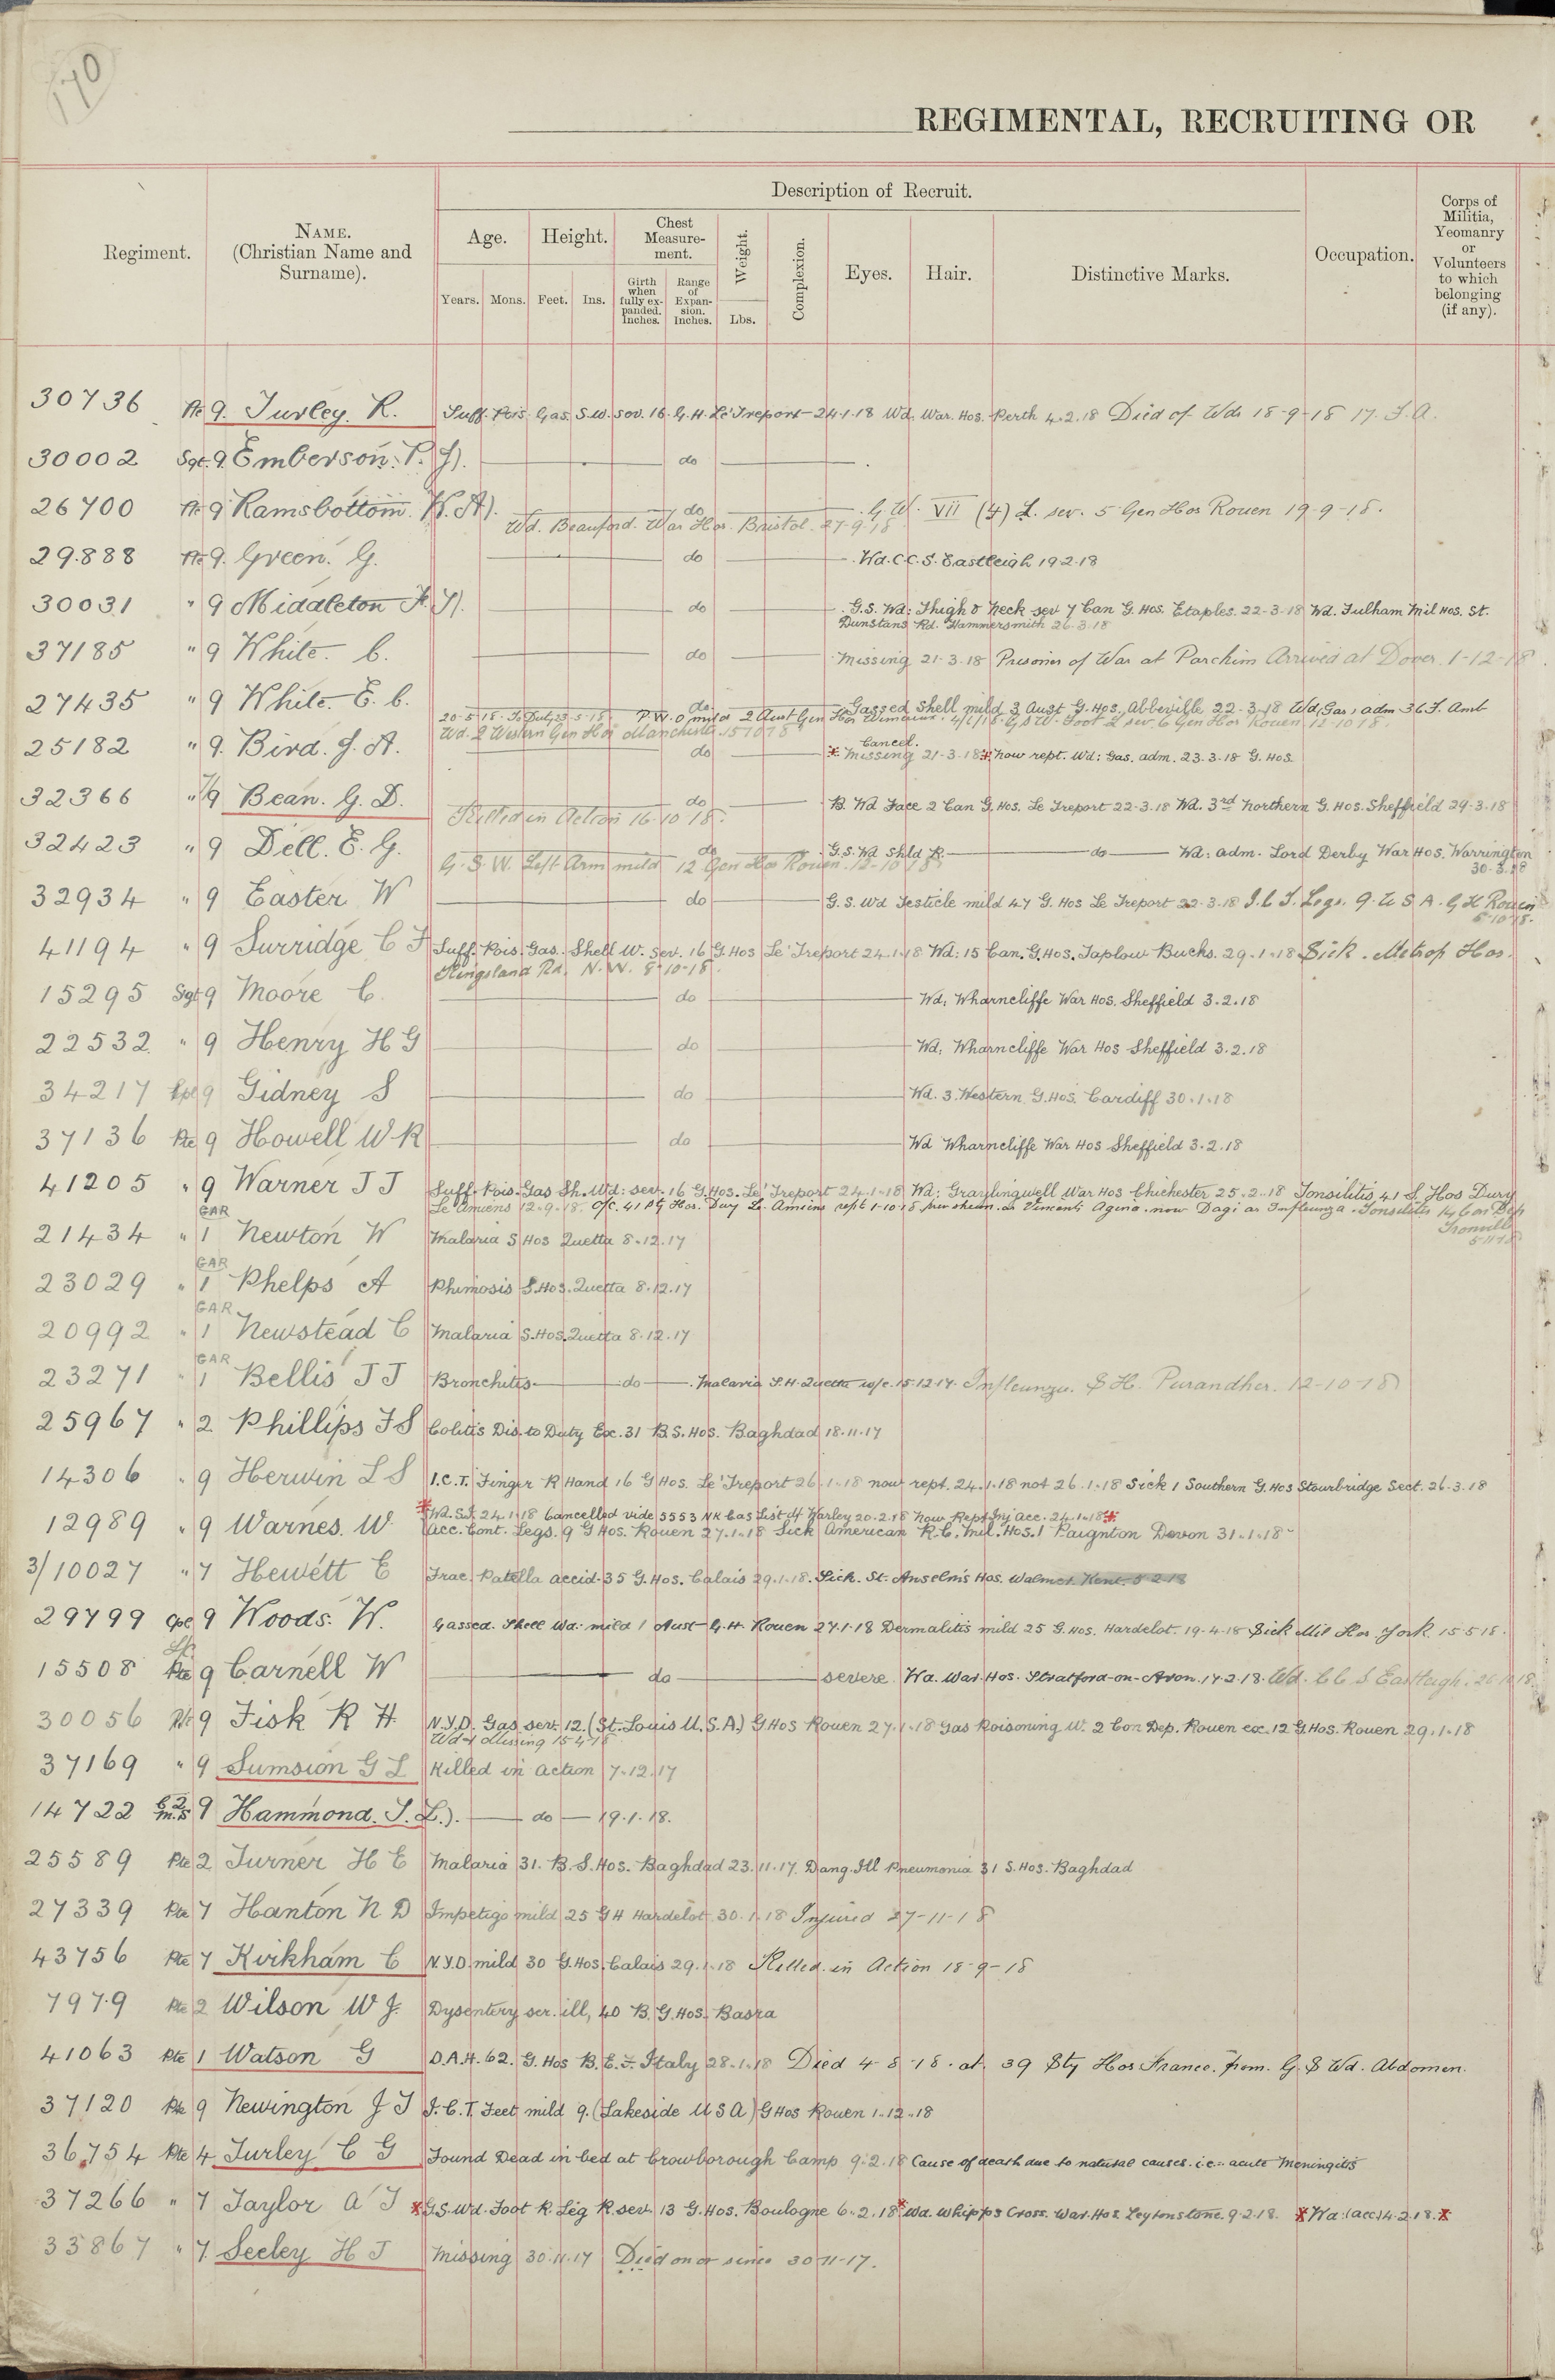 170
REGIMENTAL, RECRUITING OR
Regiment.
NAME.
(Christian Name and
Surname).
Description of Recruit.
Age.
Height.
Chest
Measure-
ment.
Weight.
Complexion.
Eyes.
Hair.
Distinctive Marks.
Occupation.
Corps of
Militia,
Yeomanry
or
Volunteers
to which
belonging
(if any).
Years.
Mons.
Feet.
Ins.
Girth
when
fully ex-
panded.
Inches.
Range
of
Expan-
sion.
Inches.
Lbs.
30736 Pte 9. Turley. R. Suff. Pois. Gas. S.W. sev. 16. G. H. Le Treport 24.1.18 Wd. War. Hos. Perth 4.2.18 Died of Wds 18-9-18 17. F. A.
30002 Sgt. 9. Emberson. P. J). do
26700 Pte 9 Ramsbottom. W. A). do G. W. VII (4) L. sev. 5 Gen Hos Rouen 19-9-18.
Wd. Beauford. War Hos. Bristol. 27-9-18
29.888 Pte 9. Green. G. do Wd. C.C.S. Eastleigh 19.2.18
30031 " 9 Middleton F. J). do G.S. Wd: Thigh & Neck sev 7 Can G. Hos. Etaples. 22-3-18 Wd. Fulham Mil Hos. St.
Dunstans Rd. Hammersmith 26.3.18
37185 " 9 White. C. do Missing 21-3-18 Prisoner of War at Parchim Arrived at Dover. 1-12-18
27435 " 9 White. E. C. do Gassed Shell mild 3 Aust G. Hos. Abbeville 22-3-18 Wd, Gas, adm 36 F. Amb
20-5-18. To Duty 23-5-18. P.U.O mild 2 Aust Gen Hos Wimereux. G.S.W. Foot L sev. 6 Gen Hos Rouen 12-10-18.
Wd. 2 Western Gen Hos Manchester. 15-10-18
25182 " 9. Bird. J. A. do Cancel. * Missing 21-3-18 * Now rept. Wd: Gas. adm. 23-3-18 G. Hos.
32366 " 9 Bean. G. D. do B. Wd Face 2 Can G. Hos. Le Treport 22-3-18 Wd. 3rd Northern G. Hos. Sheffield 29-3-18
Killed in Action 16-10-18.
32423 " 9 Dell. E. G. do G.S. Wd Shld R. do Wd: adm. Lord Derby War Hos. Warrington
30-3-18
G. S. W. Left Arm mild 12 Gen Hos Rouen. 12-10-18
32934 " 9 Easter W do G. S. Wd Testicle mild 47 G. Hos Le Treport 22-3-18 I. C. T. Legs. 9. U S A. G H Rouen
6-10-18.
41194 " 9 Surridge C F Suff. Pois. Gas. Shell W. Sev. 16 G. Hos Le Treport 24.1.18 Wd: 15 Can. G. Hos. Taplow Bucks. 29.1.18 Sick. Metrop Hos.
Kingsland Rd. N.W. 8-10-18.
15295 Sgt 9 Moore C. do Wd, Wharncliffe War Hos. Sheffield 3.2.18
22532 " 9 Henry H G do Wd, Wharncliffe War Hos Sheffield 3.2.18
34217 Cpl 9 Gidney S do Wd. 3. Western. G. Hos. Cardiff 30.1.18
37136 Pte 9 Howell W R do Wd Wharncliffe War Hos Sheffield 3.2.18
41205 " 9 Warner J J Suff. Pois. Gas Sh. Wd: sev. 16 G. Hos. Le Treport 24.1.18 Wd; Graylingwell War Hos Chichester 25.2.18 Tonsilitis 41 S. Hos Dury
Le Amiens 12-9-18. O/C. 41 Stg Hos. Dury Le. Amiens rept 1-10-18 prev shewn. as Vincents Agina. now Diag: as Influenza. Tonsilitis 14 Con Dep
Trouville
5-11-18
21434 " GAR 1 Newton W Malaria S Hos Quetta 8.12.17
23029 " GAR 1 Phelps A Phimosis S. Hos. Quetta 8.12.17
20992 " GAR 1 Newstead C Malaria S. Hos. Quetta 8.12.17
23271 " GAR 1 Bellis J J Bronchitis do Malaria S. H. Quetta w/e. 15.12.17. Influenza. S H. Purandher. 12-10-18
25967 " 2 Phillips F S Colitis Dis. to Duty Ex. 31 B. S. Hos. Baghdad 18.11.17
14306 " 9 Herwin L S I.C.T. Finger R Hand 16 G Hos. Le Treport 26.1.18 now rept. 24.1.18 not 26.1.18 Sick 1 Southern G. Hos Stourbridge Sect. 26.3.18
12989 " 9 Warnes. W * Wd. S.I. 24.1.18 Cancelled vide 5553 NK Cas List of Warley 20.2.18 Now Rept Inj acc. 24.1.18 *
Acc. Cont. Legs. 9 G Hos. Rouen 27.1.18 Sick American R.C. Mil. Hos. 1 Paignton Devon 31.1.18
3/10027 " 7 Hewett C Frac. Patella accid. 35 G. Hos. Calais 29.1.18. Sick. St. Anselms Hos. Walmer. Kent. 5.2.18
29799 Cpl 9 Woods. W. Gassed. Shell Wd. mild 1 Aust G. H. Rouen 27.1.18 Dermatitis mild 25 G. Hos. Hardelot. 19-4-18 Sick Mil Hos. York. 15-5-18.
15508 Pte 9 Carnell W do severe Wd. War. Hos. Stratford-on-Avon. 17.2.18. Wd. C C S Eastleigh. 26-10-18
30056 Pte 9 Fisk R H N.Y.D. Gas sev. 12. (St. Louis U.S.A.) G Hos Rouen 27.1.18 Gas Poisoning W. 2 Con Dep. Rouen ex. 12 G. Hos. Rouen 29.1.18
Wd & Missing 15-4-18
37169 " 9 Sumsion G L Killed in action 7.12.17
14722 C.S.M. 9 Hammond. S. L.). do 19.1.18.
25589 Pte 2 Turner H E Malaria 31. B. S. Hos. Baghdad 23.11.17. Dang. Ill Pneumonia 31 S. Hos. Baghdad
27339 Pte 7 Hanton N D Impetigo mild 25 G H Hardelot 30.1.18 Injured 27-11-18
43756 Pte 7 Kirkham C N.Y.D. mild 30 G. Hos. Calais 29.1.18 Killed. in Action 18-9-18
7979 Pte 2 Wilson W J. Dysentery ser. ill, 40 B. G. Hos. Basra
41063 Pte 1 Watson G D.A.H. 62. G. Hos B. E. F. Italy 28.1.18 Died 4-8-18. at. 39 Sty Hos France. from. G. S Wd. Abdomen.
37120 Pte 9 Newington J T I. C. T. Feet mild 9. (Lakeside U S A) G Hos Rouen 1.12.18
36754 Pte 4 Turley C G Found Dead in bed at Crowborough Camp 9.2.18 Cause of death due to natural causes. i.e. acute Meningitis
37266 " 7 Taylor A J * G.S. Wd. Foot R. Leg R. sev. 13 G. Hos. Boulogne 6.2.18 * Wd. Whipps Cross. War. Hos. Leytonstone. 9.2.18. * Wd: (acc) 4.2.18. *
33867 " 7. Seeley H J Missing 30.11.17 Died on or since 30-11-17.